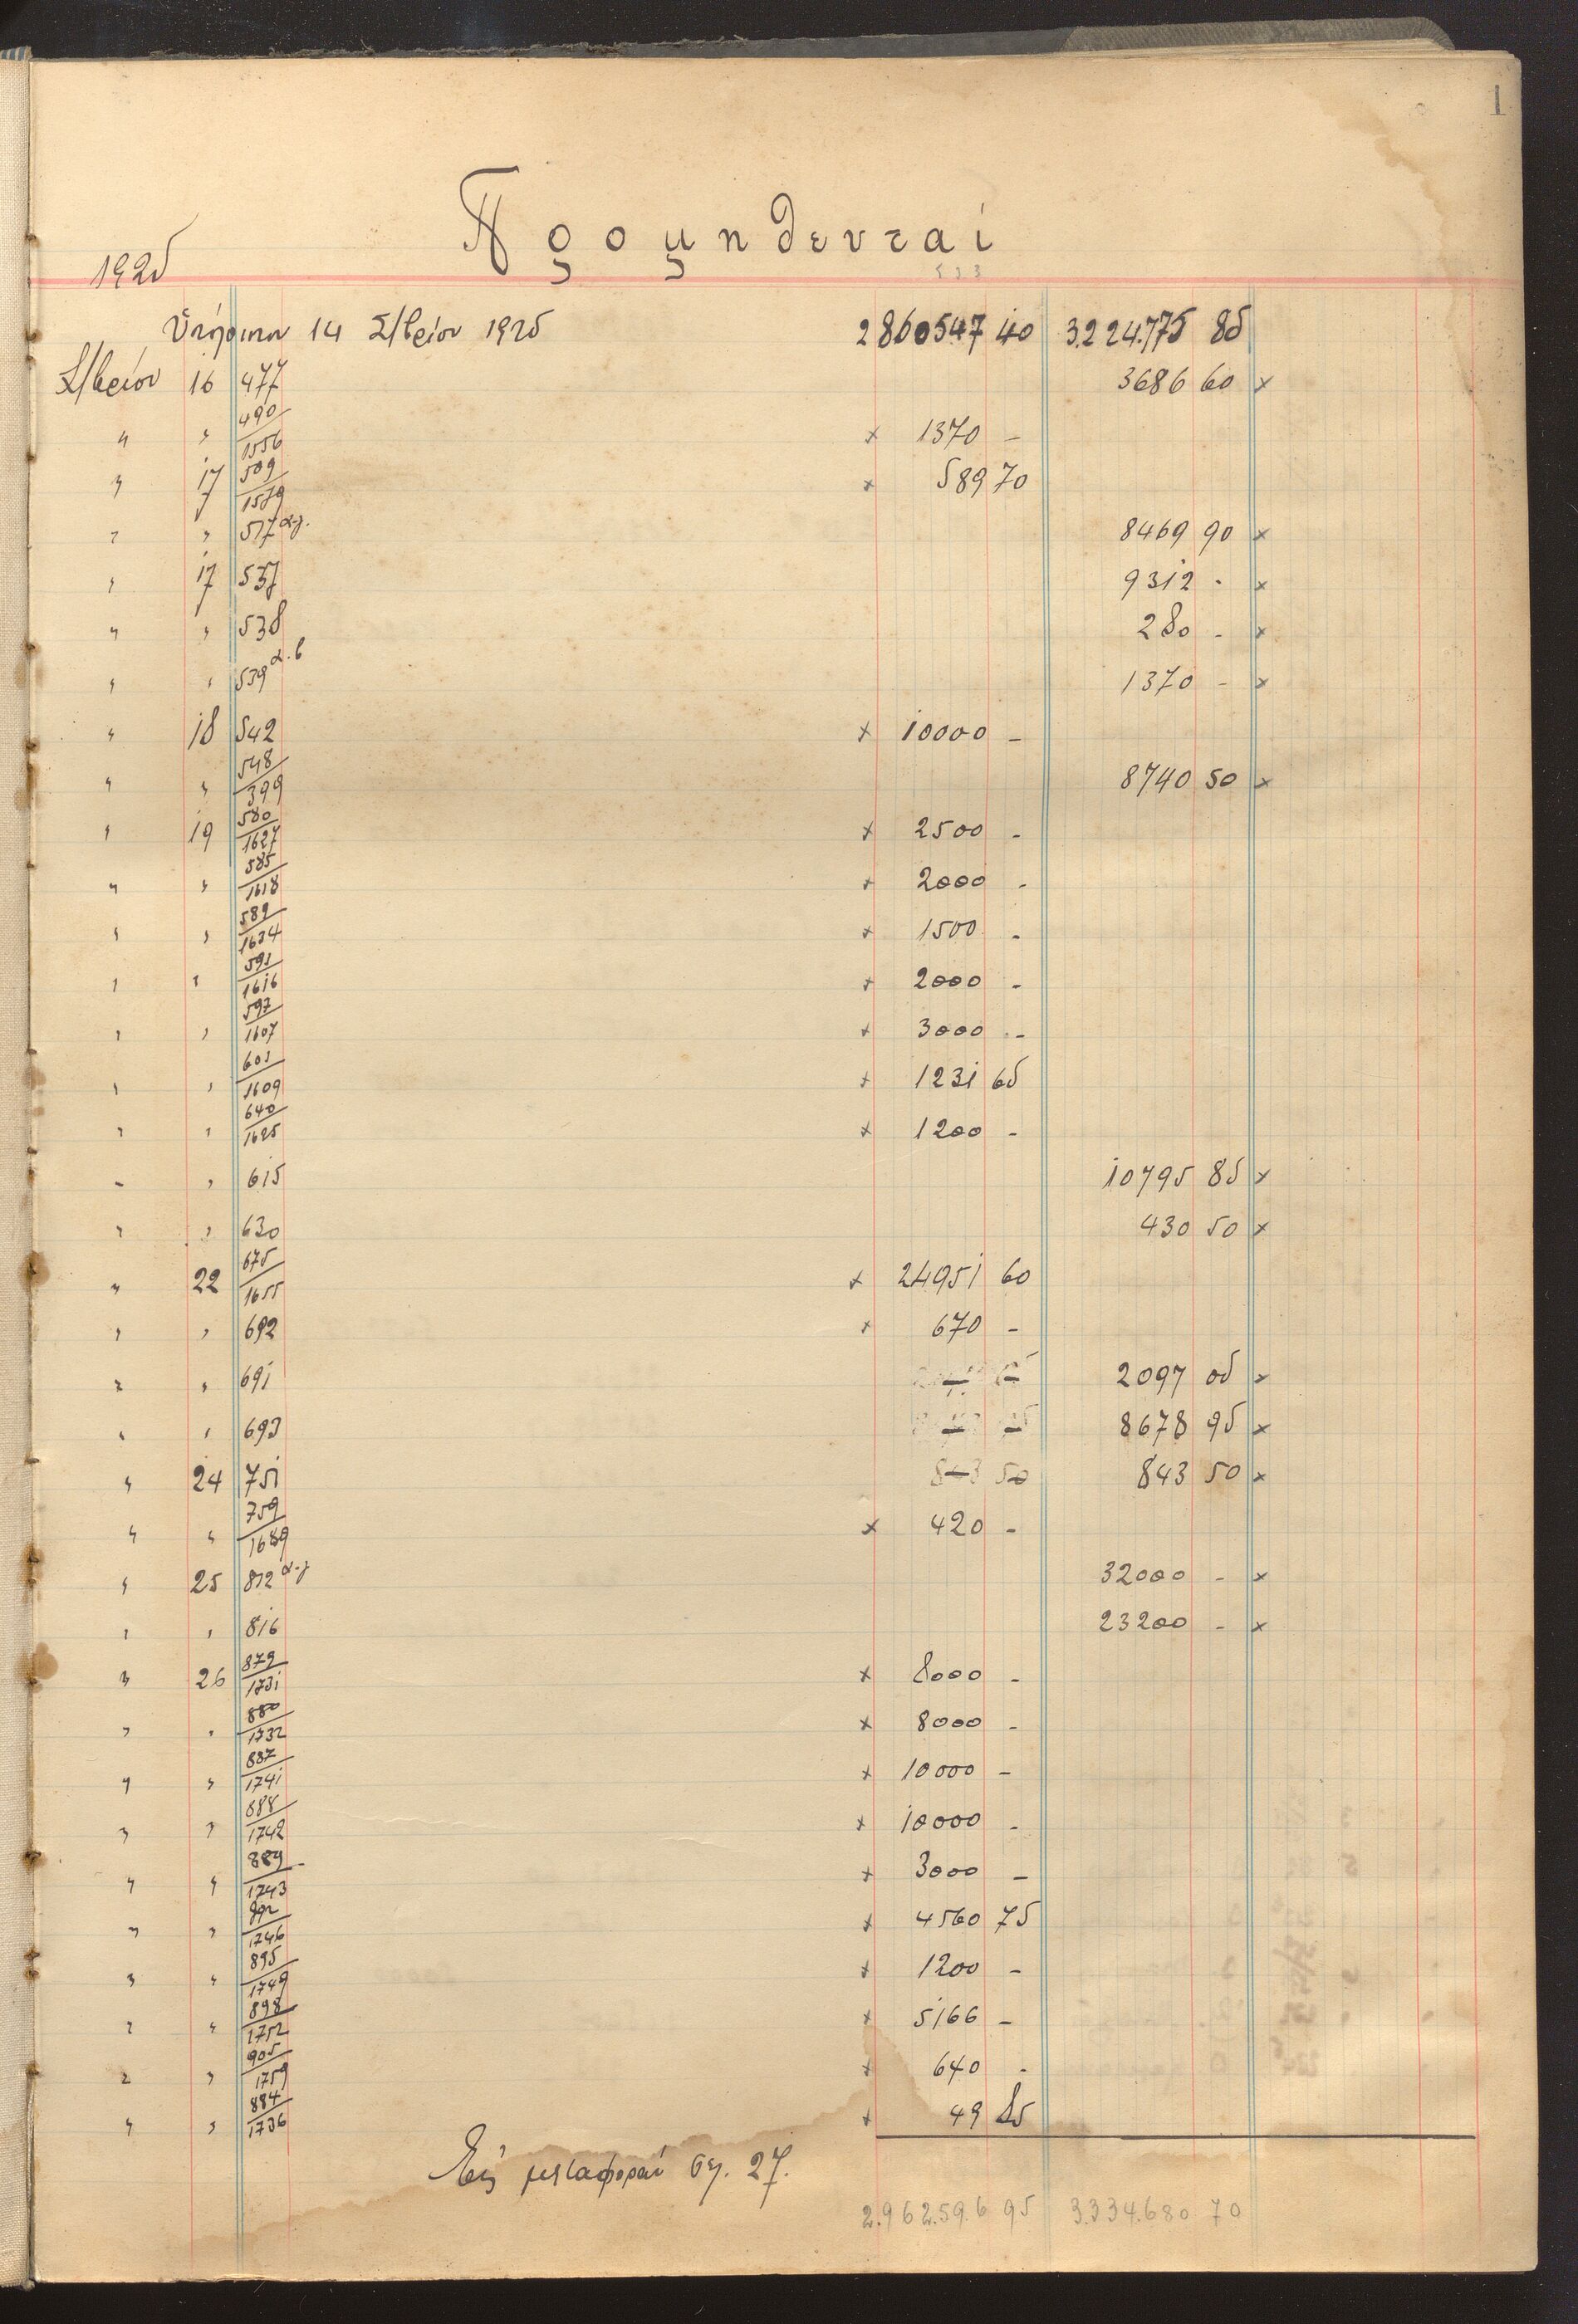 1
Προμηθευταί
1925
Ὑπόλοιπον 14 Σ/βρίου 1925 2860547 40 3.224.775 85
Σ/βρίου 16 477 3686 60 x
" " 490/1556 x 1370 -
" 17 509/1579 x 589 70
" " 517 α-γ. 8469 90 x
" 17 537 9312 - x
" " 538 280 - x
" " 539 α-β 1370 - x
" 18 542 x 10000 -
" " 548/399 8740 50 x
" 19 580/1627 x 2500 -
" " 585/1618 x 2000 -
" " 589/1634 x 1500 -
" " 591/1616 x 2000 -
" " 597/1607 x 3000 -
" " 601/1609 x 1231 65
" " 640/1625 x 1200 -
" " 615 10795 85 x
" " 630 430 50 x
" 22 675/1655 x 24951 60
" " 692 x 670 -
" " 691 2097 05 x
" " 693 8678 95 x
" 24 751 843 50 843 50 x
" " 759/1689 x 420 -
" 25 812 α-γ 32000 - x
" " 816 23200 - x
" 26 879/1731 x 8000 -
" " 880/1732 x 8000 -
" " 887/1741 x 10000 -
" " 888/1742 x 10000 -
" " 889/1743 x 3000 -
" " 892/1746 x 4560 75
" " 895/1749 x 1200 -
" " 898/1752 x 5166 -
" " 905/1759 x 640 -
" " 884/1736 x 49 85
Εἰς μεταφοράν σελ. 27.
2.962.596 95 3.334.680 70